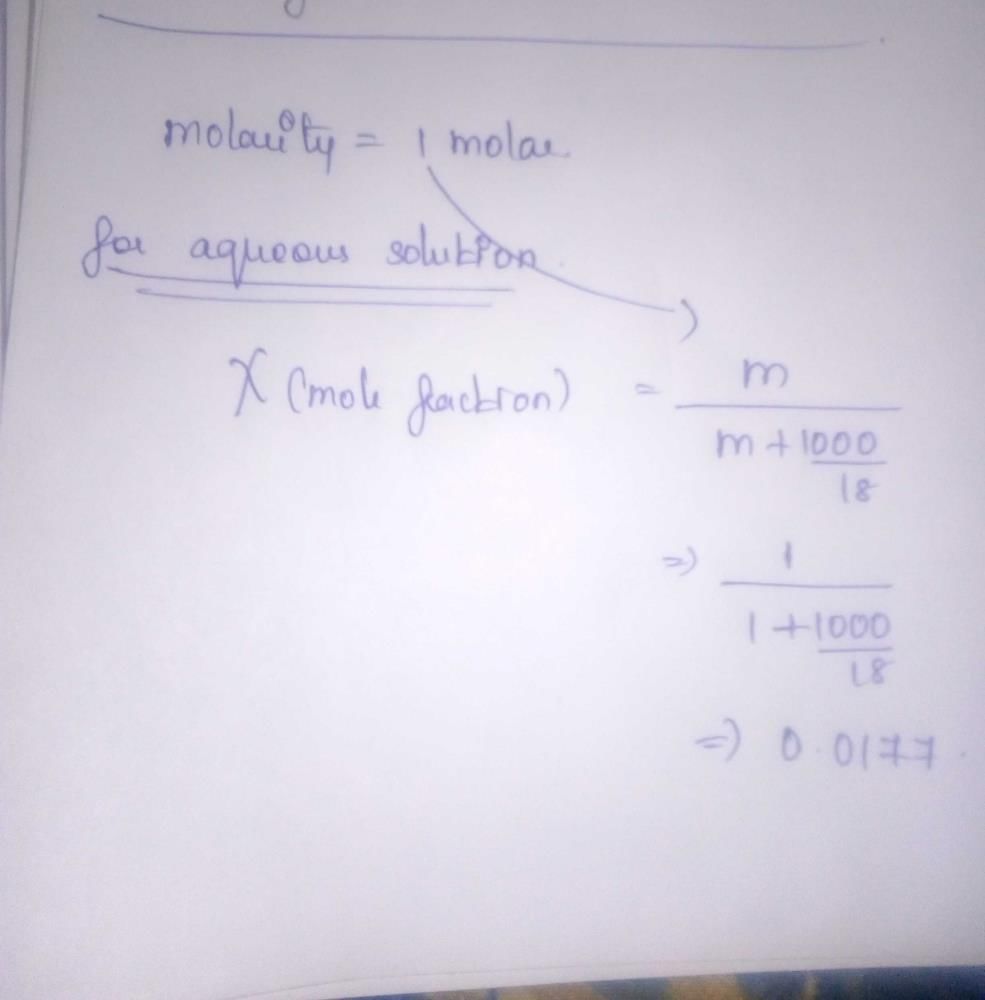 molarity = 1 molar
for aqueous solution.
X (mole fraction) = m
m + 1000
18
=) 1
1 + 1000
18
=) 0.0177.